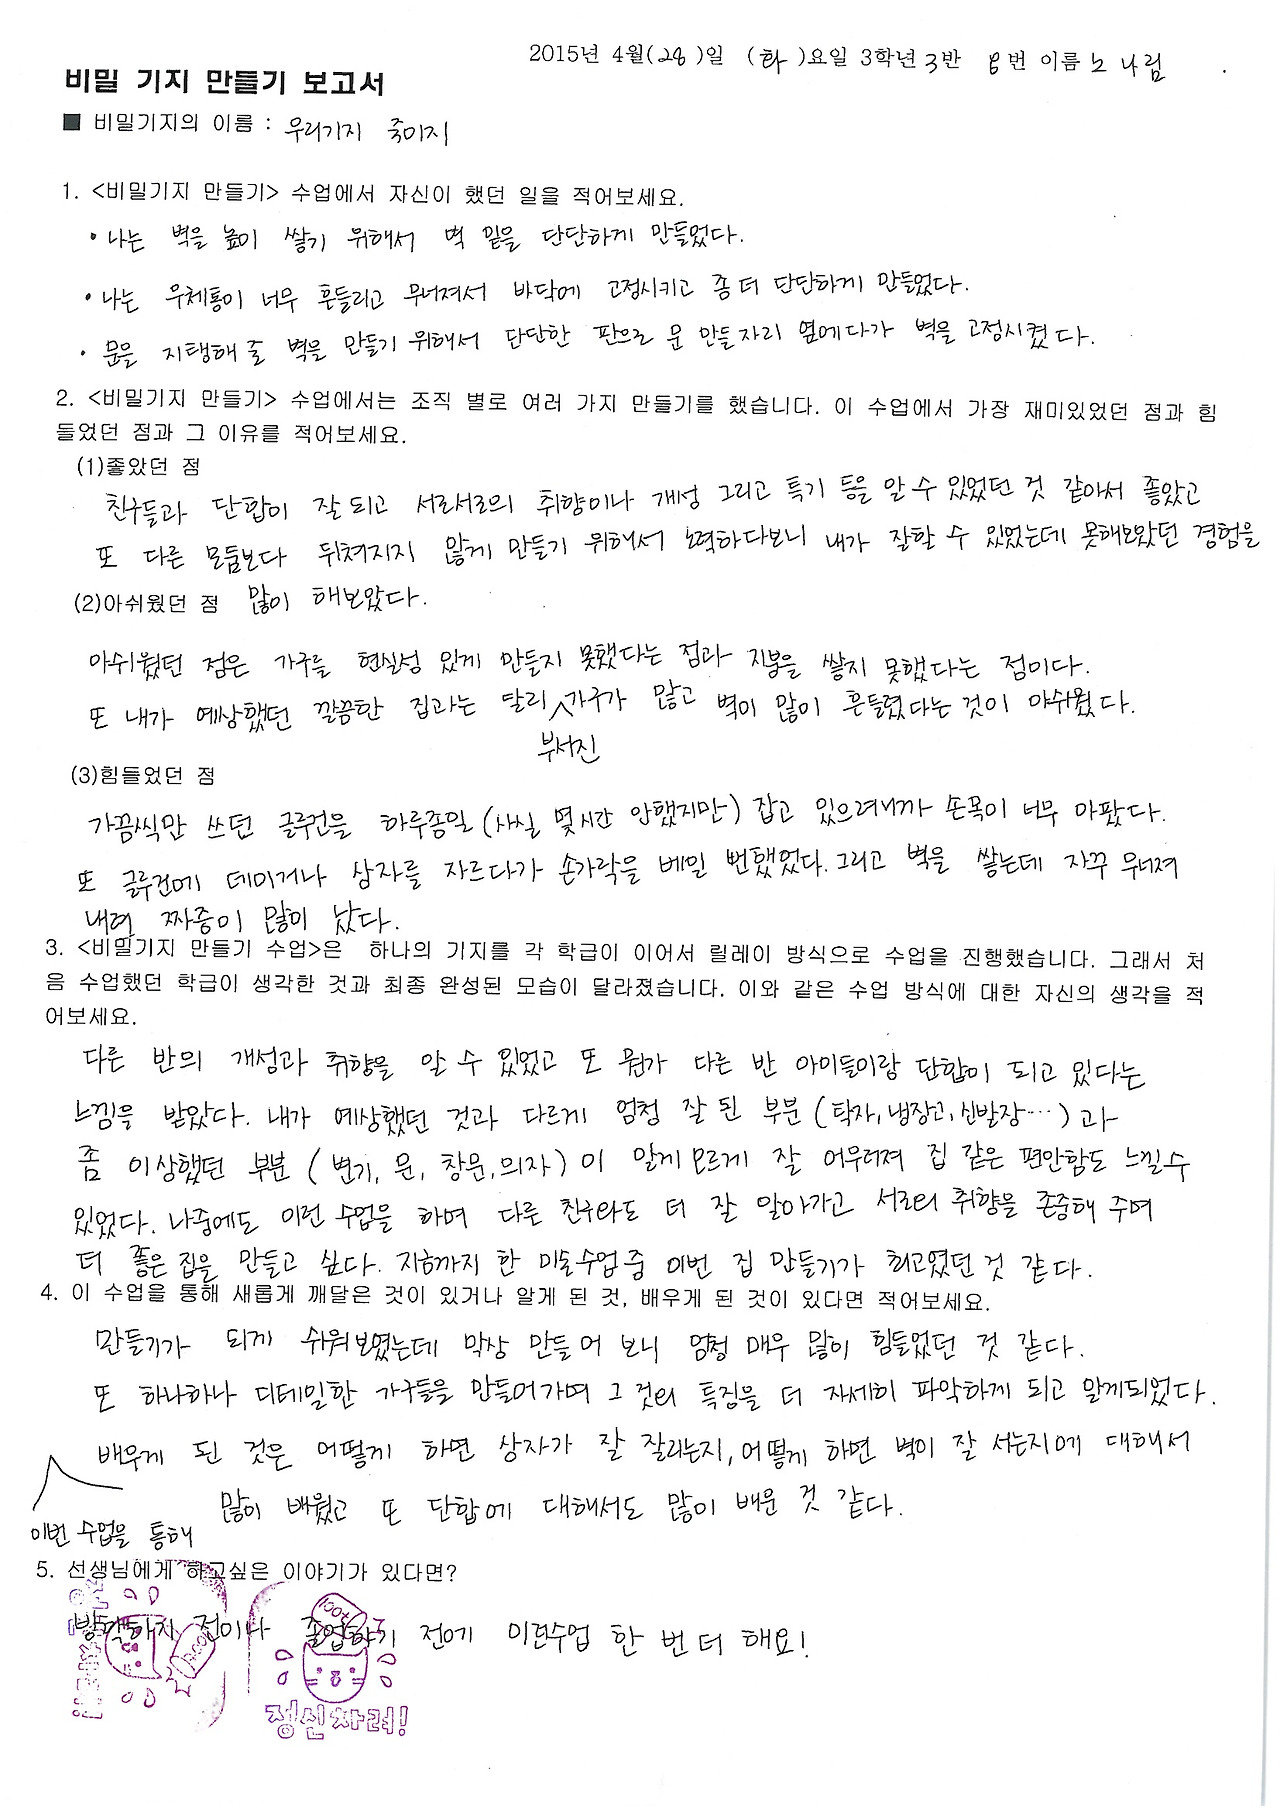 2015년 4월(28)일 (화)요일 3학년 3반 8번 이름 노나림
비밀 기지 만들기 보고서
■ 비밀기지의 이름 : 우리기지 죽이지
1. <비밀기지 만들기> 수업에서 자신이 했던 일을 적어보세요.
• 나는 벽을 높이 쌓기 위해서 벽 밑을 단단하게 만들었다.
• 나는 우체통이 너무 흔들리고 무너져서 바닥에 고정시키고 좀 더 단단하게 만들었다.
• 문을 지탱해 줄 벽을 만들기 위해서 단단한 판으로 문 만들 자리 옆에다가 벽을 고정시켰다.
2. <비밀기지 만들기> 수업에서는 조직 별로 여러 가지 만들기를 했습니다. 이 수업에서 가장 재미있었던 점과 힘
들었던 점과 그 이유를 적어보세요.
(1)좋았던 점
친구들과 단합이 잘 되고 서로서로의 취향이나 개성 그리고 특기 등을 알 수 있었던 것 같아서 좋았고
또 다른 모둠보다 뒤쳐지지 않게 만들기 위해서 노력하다보니 내가 잘할 수 있었는데 못해보았던 경험을
(2)아쉬웠던 점 많이 해보았다.
아쉬웠던 점은 가구를 현실성 있게 만들지 못했다는 점과 지붕을 쌓지 못했다는 점이다.
또 내가 예상했던 깔끔한 집과는 달리 가구가 많고 벽이 많이 흔들렸다는 것이 아쉬웠다.
부서진
(3)힘들었던 점
가끔씩만 쓰던 글루건을 하루종일 (사실 몇시간 안했지만) 잡고 있으려니까 손목이 너무 아팠다.
또 글루건에 데이거나 상자를 자르다가 손가락을 베일 뻔했었다. 그리고 벽을 쌓는데 자꾸 무너져
내려 짜증이 많이 났다.
3. <비밀기지 만들기 수업>은 하나의 기지를 각 학급이 이어서 릴레이 방식으로 수업을 진행했습니다. 그래서 처
음 수업했던 학급이 생각한 것과 최종 완성된 모습이 달라졌습니다. 이와 같은 수업 방식에 대한 자신의 생각을 적
어보세요.
다른 반의 개성과 취향을 알 수 있었고 또 뭔가 다른 반 아이들이랑 단합이 되고 있다는
느낌을 받았다. 내가 예상했던 것과 다르게 엄청 잘 된 부분 (탁자, 냉장고, 신발장…) 과
좀 이상했던 부분 (변기, 문, 창문, 의자) 이 알게모르게 잘 어우러져 집 같은 편안함도 느낄수
있었다. 나중에도 이런 수업을 하며 다른 친구와도 더 잘 알아가고 서로의 취향을 존중해 주며
더 좋은 집을 만들고 싶다. 지금까지 한 미술수업 중 이번 집 만들기가 최고였던 것 같다.
4. 이 수업을 통해 새롭게 깨달은 것이 있거나 알게 된 것, 배우게 된 것이 있다면 적어보세요.
만들기가 되게 쉬워보였는데 막상 만들어 보니 엄청 매우 많이 힘들었던 것 같다.
또 하나하나 디테일한 가구들을 만들어가며 그 것의 특징을 더 자세히 파악하게 되고 알게되었다.
배우게 된 것은 어떻게 하면 상자가 잘 잘리는지, 어떻게 하면 벽이 잘 서는지에 대해서
많이 배웠고 또 단합에 대해서도 많이 배운 것 같다.
이번 수업을 통해
5. 선생님에게 하고싶은 이야기가 있다면?
방학하기 전이나 졸업하기 전에 이런수업 한 번 더 해요!
정신차려!